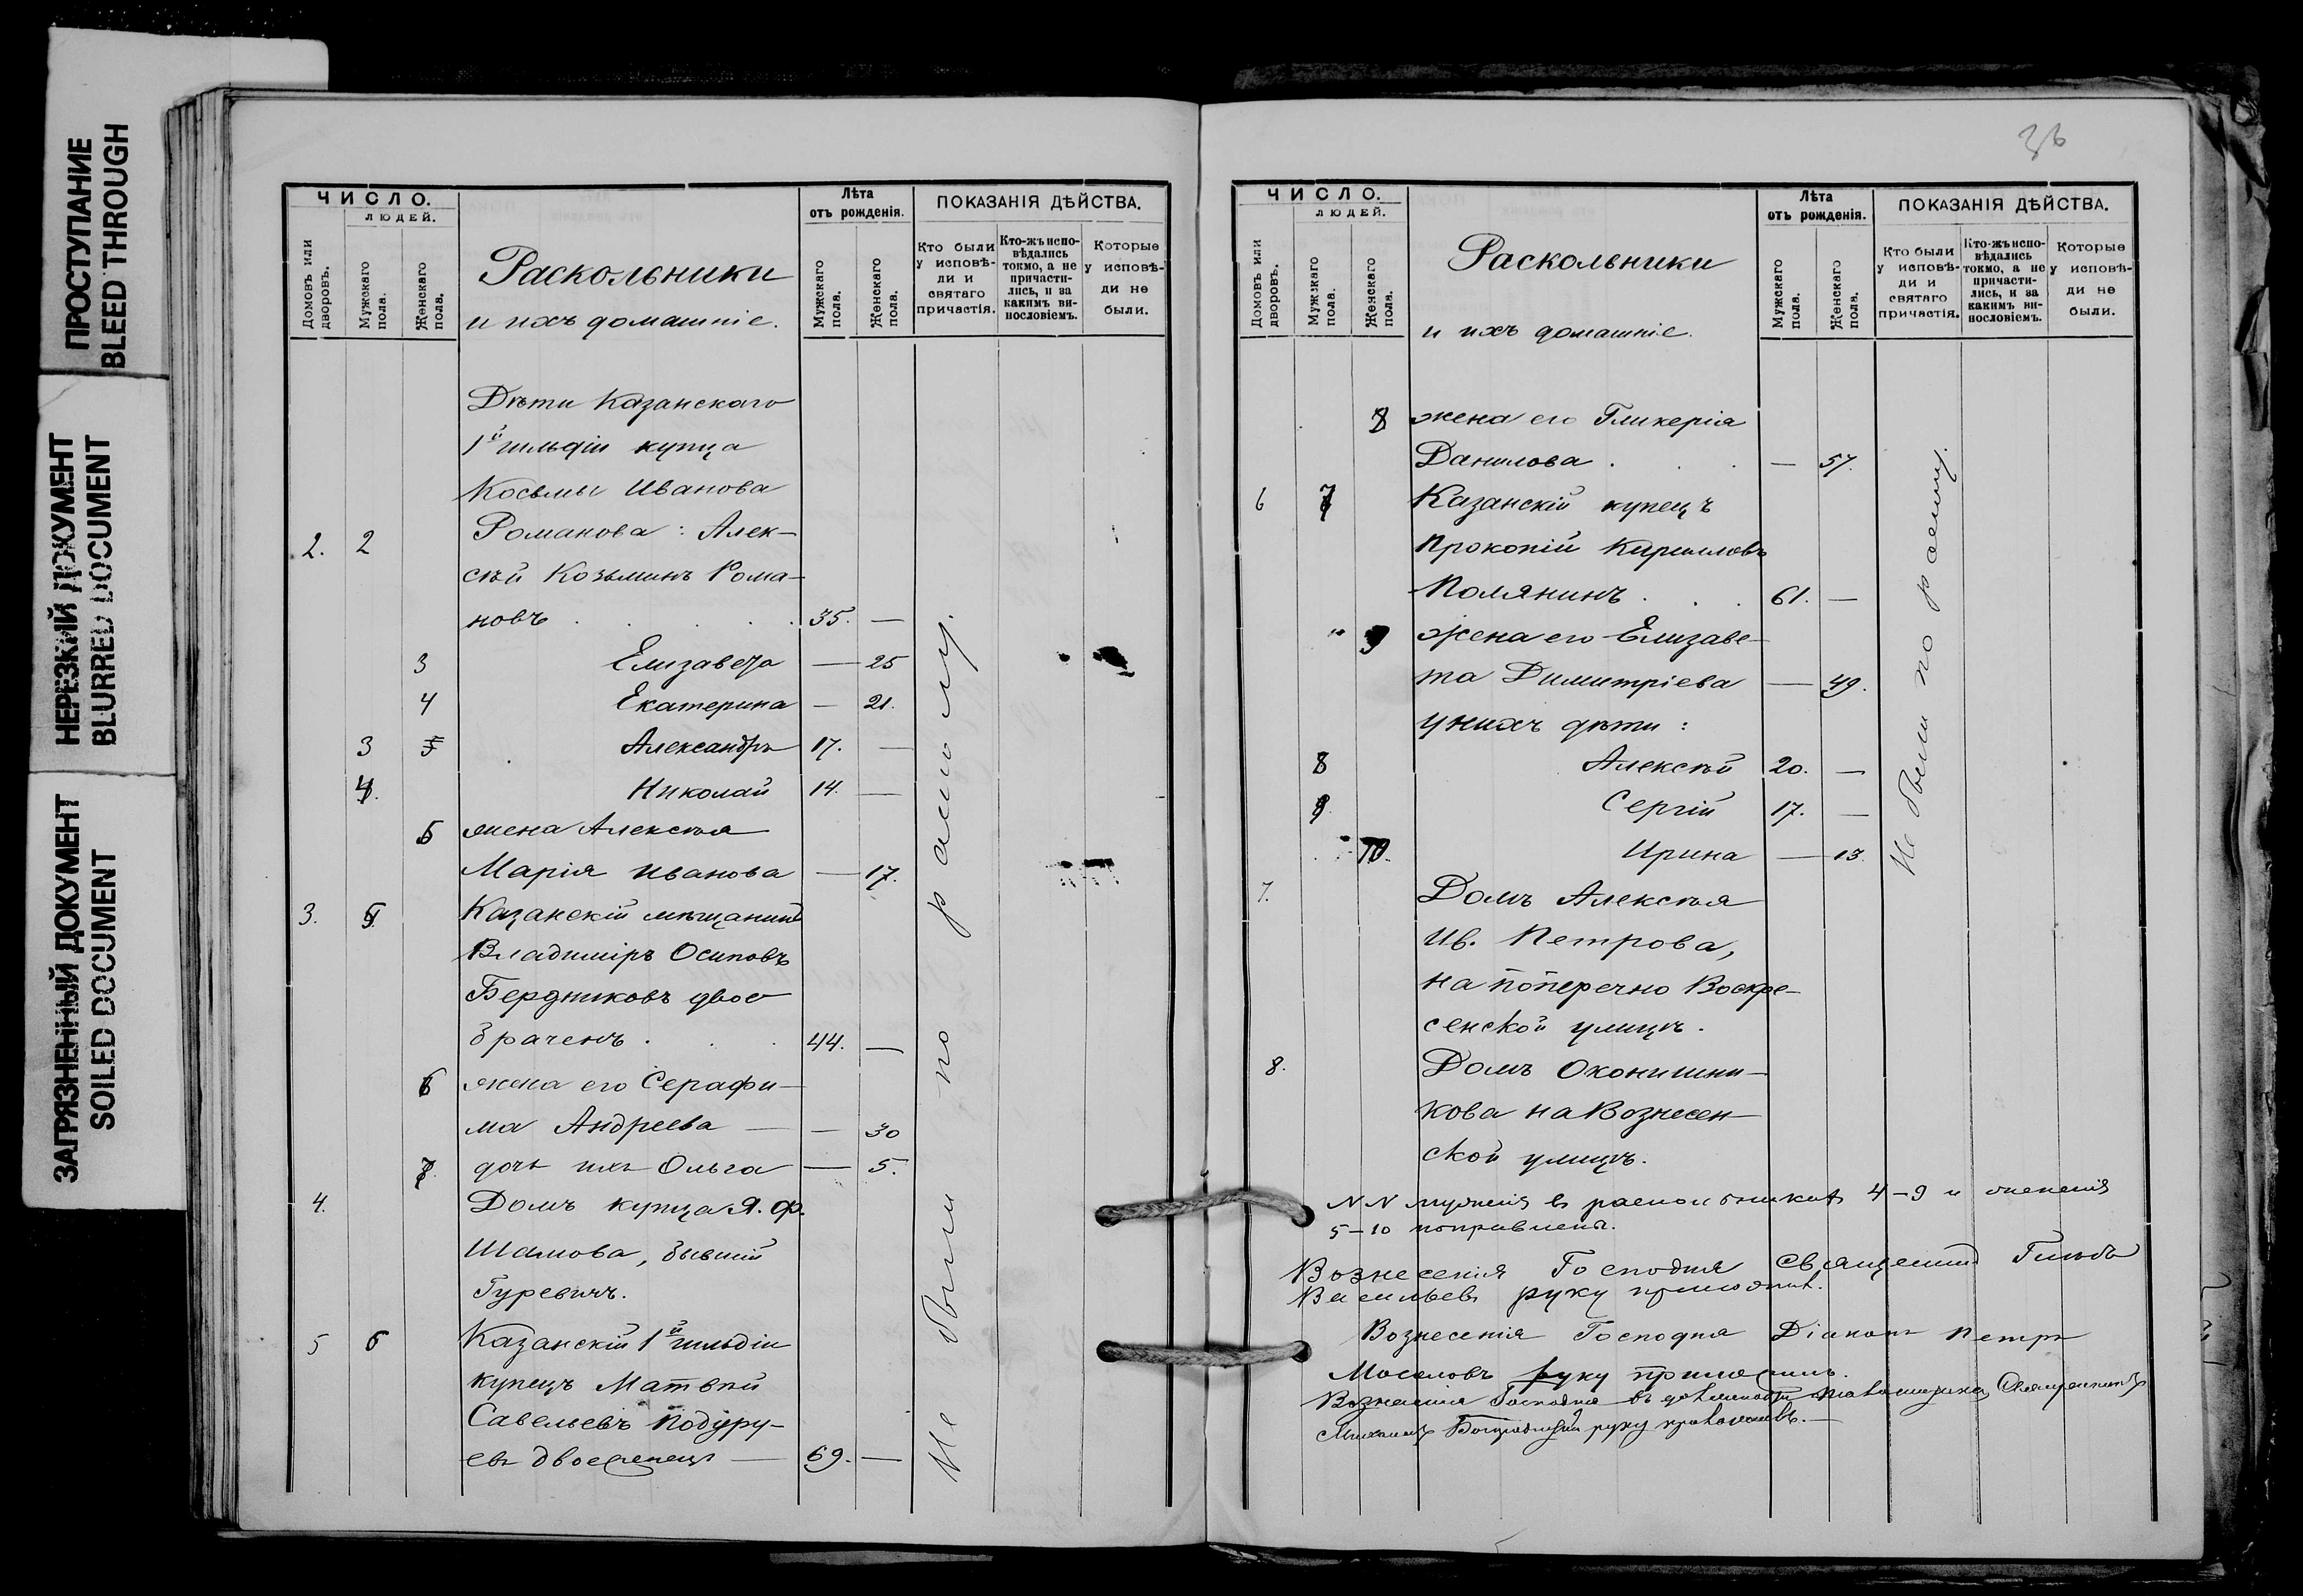 ПРОСТУПАНИЕ
BLEED THROUGH
НЕРЕЗКИЙ ДОКУМЕНТ
BLURRED DOCUMENT
ЗАГРЯЗНЕННЫЙ ДОКУМЕНТ
SOILED DOCUMENT
ЧИСЛО.
ЛЮДЕЙ.
Домовъ или дворовъ.
Мужскаго пола.
Женскаго пола.
Раскольники
и ихъ домашніе.
Лѣта
отъ рожденія.
Мужскаго пола.
Женскаго пола.
ПОКАЗАНІЯ ДѢЙСТВА.
Кто были у исповѣ-ди и святаго причастія.
Кто-жъ испо-вѣдались токмо, а не причасти-лись, и за какимъ ви-нословіемъ.
Которые у исповѣ-ди не были.
Дѣти Казанскаго
1й гильдіи купца
Косьмы Иванова
2. 2 Романова: Алек-
сѣй Козьминъ Рома-
новъ . . . . . 35. —
3 Елизавета — 25
4 Екатерина — 21.
3 Александръ 17. —
4. Николай 14. —
5 жена Алексѣя
Марія Иванова — 17.
3. 5 Казанскій мѣщанинъ
Владиміръ Осиповъ
Бердниковъ двое
браченъ . . . 44. —
6 жена его Серафи-
ма Андреева — — 30
7. дочь ихъ Ольга — 5.
4. Домъ купца Я. Ф.
Шамова, бывшій
Гуревичъ.
5 6 Казанскій 1й гильдіи
купецъ Матвѣй
Савельевъ Подуру-
евъ двоеженецъ — 69. —
Не были по расколу.
36
ЧИСЛО.
ЛЮДЕЙ.
Домовъ или дворовъ.
Мужскаго пола.
Женскаго пола.
Раскольники
и ихъ домашніе.
Лѣта
отъ рожденія.
Мужскаго пола.
Женскаго пола.
ПОКАЗАНІЯ ДѢЙСТВА.
Кто были у исповѣ-ди и святаго причастія.
Кто-жъ испо-вѣдались токмо, а не причасти-лись, и за какимъ ви-нословіемъ.
Которые у исповѣ-ди не были.
8 жена его Гликерія
Данилова . . . — 57.
6 7 Казанскій купецъ
Прокопій Кирилловъ
Полянинъ . . . 61. —
9 жена его Елизаве-
та Димитріева — 49.
у нихъ дѣти:
8 Алексѣй 20. —
9 Сергій 17. —
10. Ирина — 13.
7. Домъ Алексѣя
Ив. Петрова,
на поперечно Воскре-
сенской улицѣ.
8. Домъ Оконишни-
кова на Вознесен-
ской улицѣ.
Не были по расколу.
NN мужскія въ раскольникахъ 4-9 и женскія
5-10 поправлены.
Вознесенія Господня Священникъ
Васильевъ руку приложилъ.
Вознесенія Господня Діаконъ Петръ
руку приложилъ.
Вознесенія Господня въ должности псаломщика Священникъ
Михаилъ руку приложилъ. —